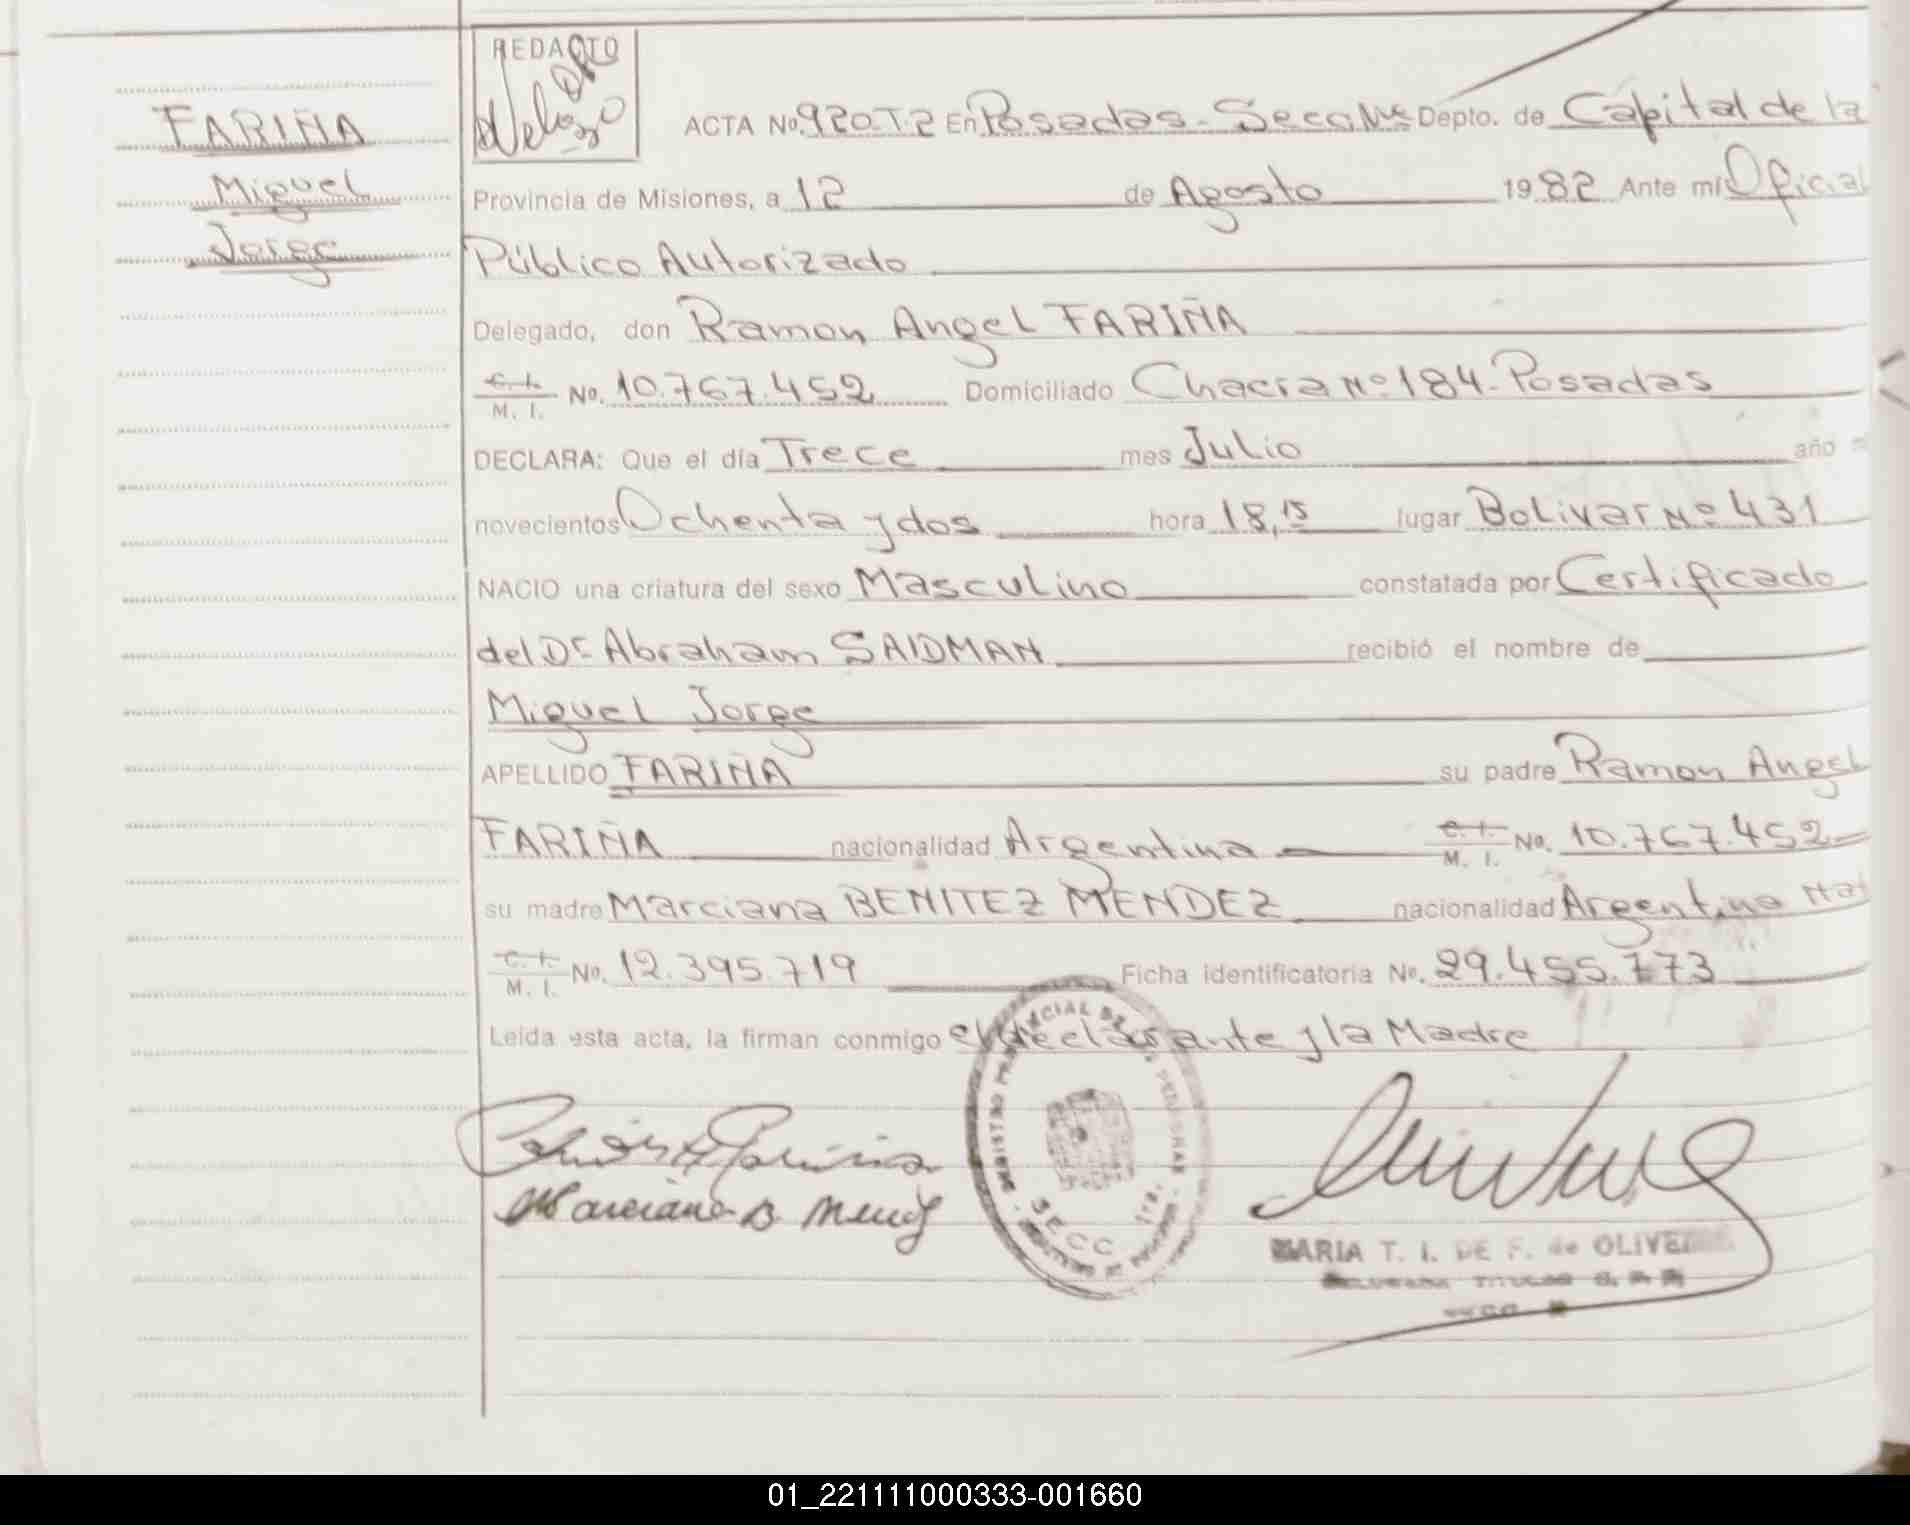 FARIÑA
Miguel
Jorge
REDACTO
ACTA No. 920.T.2 En Posadas - Secc. Depto. de Capital de la
Provincia de Misiones, a 12 de Agosto 1982 Ante mí Oficial
Público Autorizado
Delegado, don Ramon Angel FARIÑA
C. I. M. I. No. 10.767.452 Domiciliado Chacra Nº 184. Posadas
DECLARA: Que el día Trece mes Julio año
novecientos Ochenta y dos hora 18,15 lugar Bolivar Nº 431
NACIO una criatura del sexo Masculino constatada por Certificado
del Dr Abraham SAIDMAN recibió el nombre de
Miguel Jorge
APELLIDO FARIÑA su padre Ramon Angel
FARIÑA nacionalidad Argentina C. I. M. I. No. 10.767.452
su madre Marciana BENITEZ MENDEZ nacionalidad Argentina
C. I. M. I. No. 12.395.719 Ficha identificatoria No. 29.455.773
Leída esta acta, la firman conmigo el declarante y la Madre
SECC
MARIA T. I. DE F. de OLIVEIRA
01_221111000333-001660